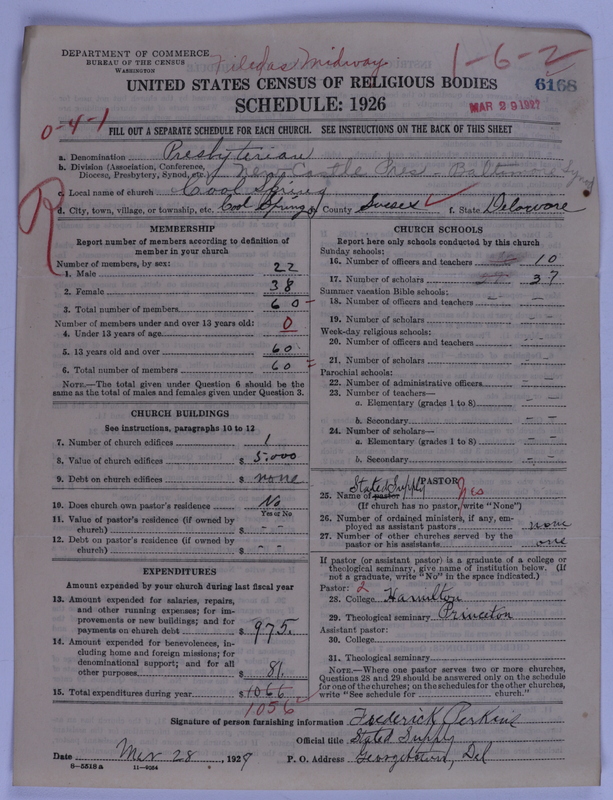 DEPARTMENT OF COMMERCE
BUREAU OF THE CENSUS
WASHINGTON
Midway
1-6-2
UNITED STATES CENSUS OF RELIGIOUS BODIES
6168
SCHEDULE: 1926
MAR 29 1927
0-4-1
FILL OUT A SEPARATE SCHEDULE FOR EACH CHURCH. SEE INSTRUCTIONS ON THE BACK OF THIS SHEET
a. Denomination Presbyterian
b. Division (Association, Conference, Diocese, Presbytery, Synod, etc.) New Castle Pres - Baltimore Synod
c. Local name of church Cool Spring
d. City, town, village, or township, etc. Cool Spring County Sussex f. State Delaware
R
MEMBERSHIP
Report number of members according to definition of
member in your church
Number of members, by sex:
1. Male 22
2. Female 38
3. Total number of members 60
Number of members under and over 13 years old:
4. Under 13 years of age 0
5. 13 years old and over 60
6. Total number of members 60
NOTE.—The total given under Question 6 should be the
same as the total of males and females given under Question 3.
CHURCH BUILDINGS
See instructions, paragraphs 10 to 12
7. Number of church edifices 1
8. Value of church edifices $ 5.000
9. Debt on church edifices $ none
10. Does church own pastor's residence No
Yes or No
11. Value of pastor's residence (if owned by
church) $ - -
12. Debt on pastor's residence (if owned by
church) $ - -
EXPENDITURES
Amount expended by your church during last fiscal year
13. Amount expended for salaries, repairs,
and other running expenses; for im-
provements or new buildings; and for
payments on church debt $ 975.
14. Amount expended for benevolences, in-
cluding home and foreign missions; for
denominational support; and for all
other purposes $ 81.
15. Total expenditures during year $ 1066
1056
CHURCH SCHOOLS
Report here only schools conducted by this church
Sunday schools:
16. Number of officers and teachers 10
17. Number of scholars 37
Summer vacation Bible schools:
18. Number of officers and teachers - -
19. Number of scholars - -
Week-day religious schools:
20. Number of officers and teachers - -
21. Number of scholars - -
Parochial schools:
22. Number of administrative officers - -
23. Number of teachers—
a. Elementary (grades 1 to 8) - -
b. Secondary - -
24. Number of scholars—
a. Elementary (grades 1 to 8) - -
b. Secondary - -
PASTOR
Stated Supply Yes
25. Name of pastor
(If church has no pastor, write "None")
26. Number of ordained ministers, if any, em-
ployed as assistant pastors none
27. Number of other churches served by the
pastor or his assistants one
If pastor (or assistant pastor) is a graduate of a college or
theological seminary, give name of institution below. (If
not a graduate, write "No" in the space indicated.)
Pastor: 2
28. College Hamilton
29. Theological seminary Princeton
Assistant pastor:
30. College
31. Theological seminary
NOTE.—Where one pastor serves two or more churches,
Questions 28 and 29 should be answered only on the schedule
for one of the churches; on the schedules for the other churches,
write "See schedule for church."
Signature of person furnishing information Frederick Perkins
Official title Stated Supply
Date Mar 28, 1927 P. O. Address Georgetown, Del
8-5518 a 11-9264